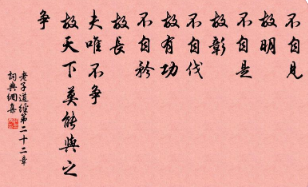 不自見
故明
不自是
故彰
不自伐
故有功
不自矜
故長
夫唯不爭
故天下莫能與之
爭
老子道經第二十二章
詞典網集